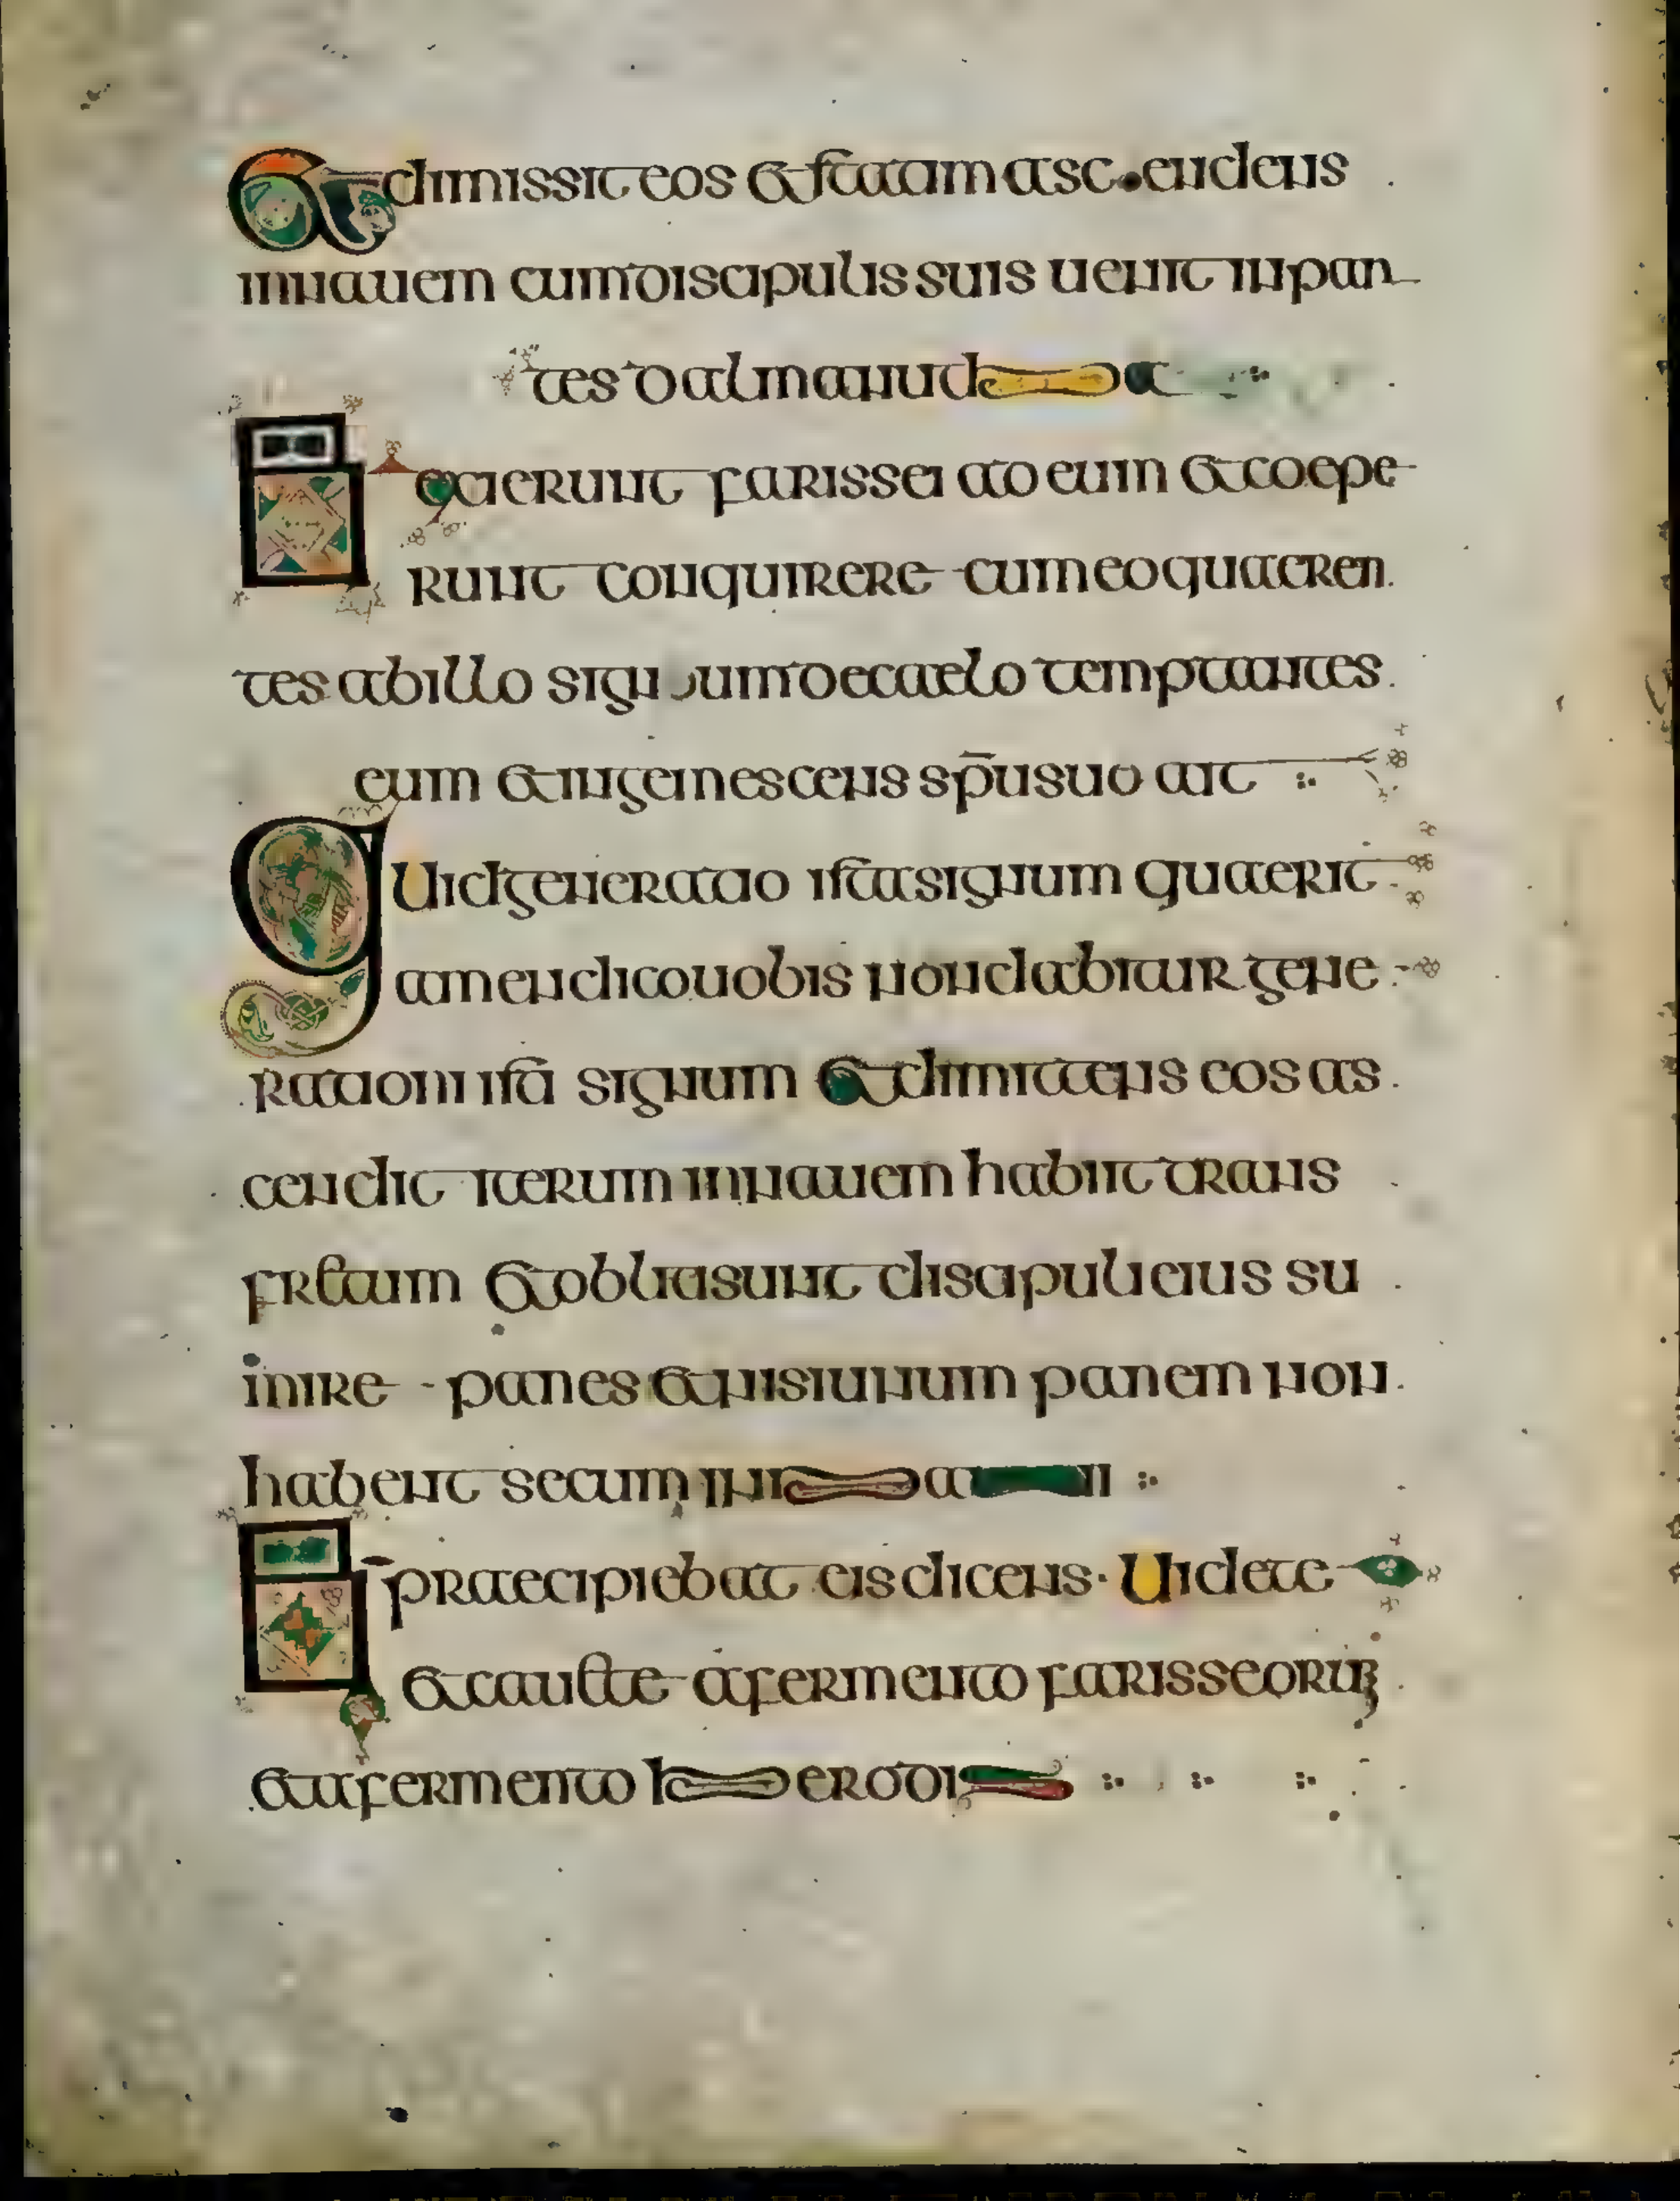 Et dimissit eos et statam ascendens
in nauem cum discipulis suis uenit in pan
tes dalmanude a
Et exierunt farissei ad eum et coepe
runt conquirere cum eo quaeren
tes ab illo signum de caelo temptantes
eum et ingemescens sp̄u suo ait
Quid generatio ista signum quaerit
amen dico uobis non dabitur gene
rationi isti signum et dimittens eos as
cendit iterum in nauem habiit trans
fretum et obliti sunt discipuli eius su
mere panes et nisi unum panem non
habent secum in naui
Et praecipiebat eis dicens· Uidete
et caute a fermento farisseorum
et a fermento herodis